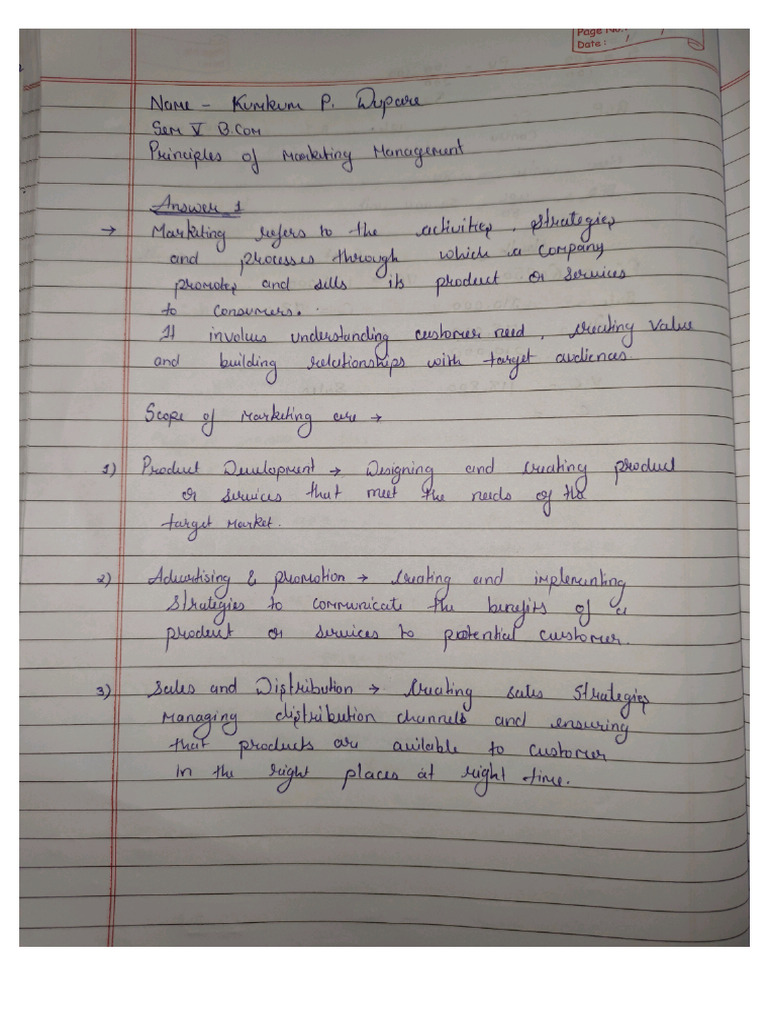 Page No.:
Date : / /
Name - Kumkum P. Dupare
Sem V B.Com
Principles of Marketing Management
Answer 1
→ Marketing refers to the activities, strategies
and processes through which a company
promotes and sells its product or services
to consumers.
It involves understanding customer need, creating value
and building relationships with target audiences
Scope of Marketing are →
1) Product Development → Designing and creating product
or services that meet the needs of the
target Market.
2) Advertising & promotion → creating and implementing
strategies to communicate the benefits of a
product or services to potential customer.
3) Sales and Distribution → creating sales strategies
Managing distribution channels and ensuring
that products are available to customer
in the right places at right time.